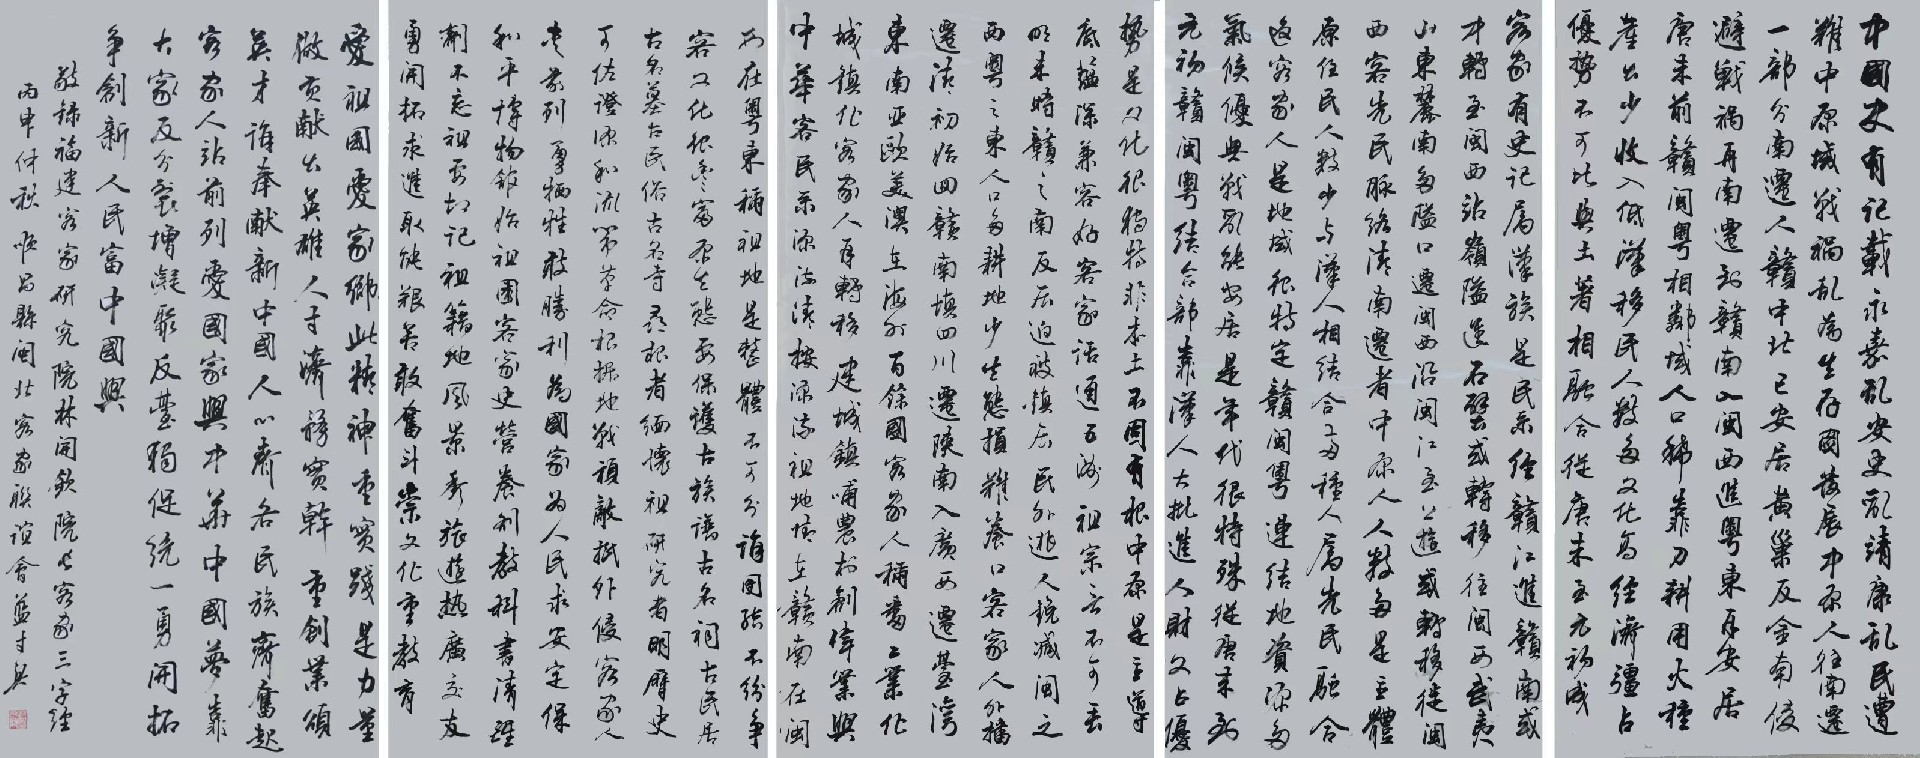 中國史有記載永嘉乱安史乱靖康乱民遭
難中原城戰禍乱為生存國發展中原人往南遷
一部分南遷人贛中北已安居黃巢反金南侵
避戰禍再南遷到贛南入閩西進粵東再安居
唐末前贛閩粵相鄰域人口稀靠刀耕用火種
產出少收入低漢移民人數多文化高經濟彊占
優勢不可比與土著相融合從唐末至元初成
客家有史記屬漢族是民系經贛江進贛南或
才轉至閩西站嶺隘送石壁或轉移往閩西武夷
山東麓南多隘口遷閩西沿閩江至上遊或轉移從閩
西客先民脈絡清南遷者中原人人數多是主體
原住民人數少与漢人相結合多種人為先民融合
這客家人是地域很特定贛閩粵連結地資源多
氣候優無戰乱能安居是年代很特殊從唐末到
元初贛閩粵結合部靠漢人大批進人財文占優
勢是文化很獨特非本土不固有根中原是主導
底蘊深兼容好客家話通五洲祖宗言不可丟
明末時贛之南反居迫被鎮居民外逃人銳減閩之
西粵之東人口多耕地少生態損難養口客家人外擋
遷清初始回贛南填四川遷陝南入廣西遷臺灣
東南亞歐美澳在海外百餘國客家人稱蕃工業化
城鎮化客家人再轉移建城鎮哺農村創偉業興
中華客民系源流清按源流祖地情在贛南在閩
西在粵東稱祖地是整體不可分誰團結不紛争
客文化很豐富原生態要保護古族譜古名祠古民居
古名墓古民俗古名寺尋根者緬懷祖研究者明歷史
可佐證源和流第革命根據地戰頑敵抵外侵客家人
走前列勇犧牲敢勝利為國家為人民求安定保
和平博物館怡祖國客家史營養剂教科書清醒
劑不忘祖要切記祖籍地風景秀旅遊熱廣交友
勇開拓求進取能艱苦敢奮斗崇文化重教育
愛祖國愛家鄉此精神重實踐是力量
做貢献出英雄人才濟移實幹重創業須
英才谁奉献新中國人心齊各民族齊奮起
客家人站前列愛國家興中華中國夢靠
大家反分裂增凝聚反臺獨促統一勇開拓
争創新人民富中國興
敬錄福建客家研究院林開欽院長客家三字經
丙申仲秋順昌縣閩北客家聯誼會藍才興